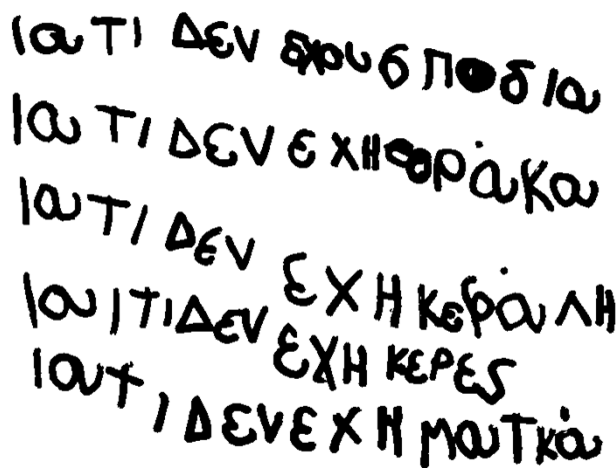 ιατι ΔΕΝ εχουσ ποδια
ιατι ΔΕΝ ΕΧΗ θοράκα
ιατι ΔΕΝ ΕΧΗ κεφάλΗ
ιαιτι ΔΕΝ ΕΧΗ κΕΡΕς
ιατι ΔΕΝ ΕΧΗ ματκά